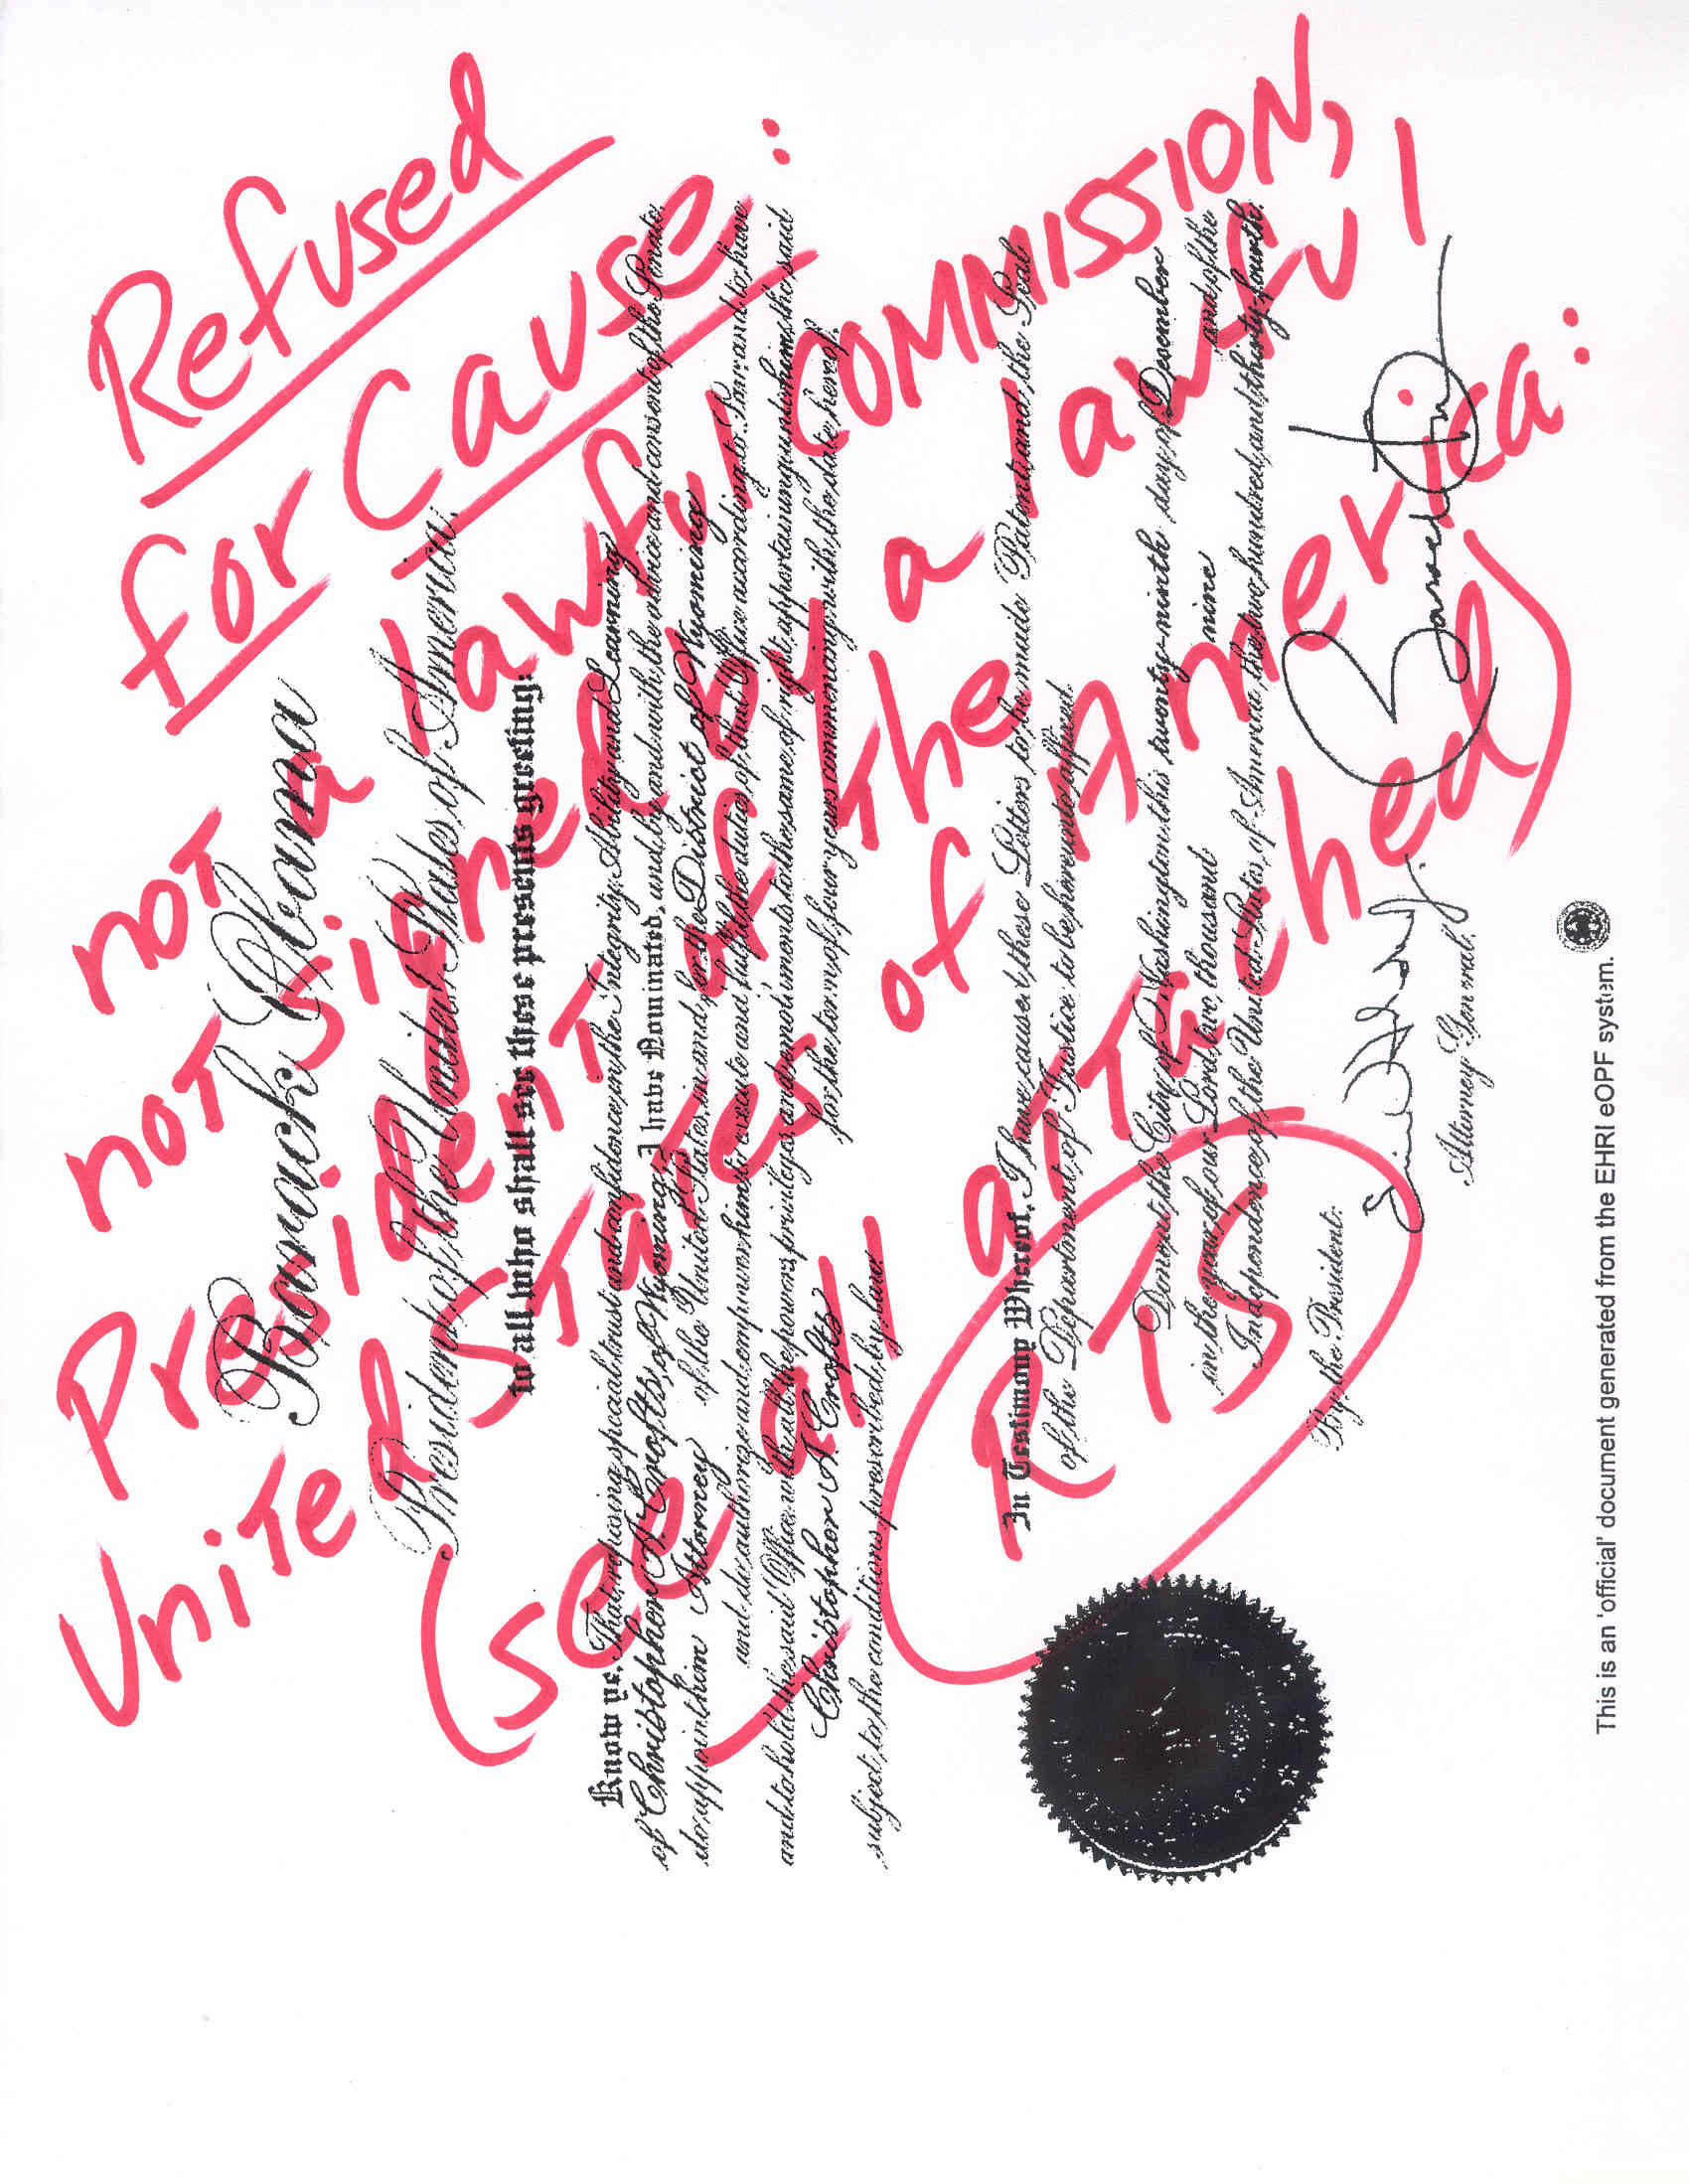 Refused
for Cause:
not a lawful COMMISSION,
not signed by a lawful
President of the
United States of America:
(see all attached)
RTS
Barack Obama
President of the United States of America,
to all who shall see these presents greeting:
Know ye, That reposing special trust and confidence in the Integrity, Ability and Learning
of Christopher A. Crofts, of Wyoming, I have Nominated, and, by and with the advice and consent of the Senate,
do appoint him Attorney of the United States, in and for the District of Wyoming
and do authorize and empower him to execute and fulfil the duties of that Office according to Law, and to have
and to hold the said Office, with all the powers, privileges, and emoluments to the same of right appertaining unto him, the said
Christopher A. Crofts for the term of four years commencing with the date hereof,
subject to the conditions prescribed by law.
In Testimony Whereof, I have caused these Letters to be made Patent and the Seal
of the Department of Justice to be hereunto affixed.
Done at the City of Washington this twenty-ninth day of December
in the year of our Lord two thousand nine and of the
Independence of the United States of America the two hundred and thirty-fourth.
By the President:
Attorney General.
This is an 'official' document generated from the EHRI eOPF system.